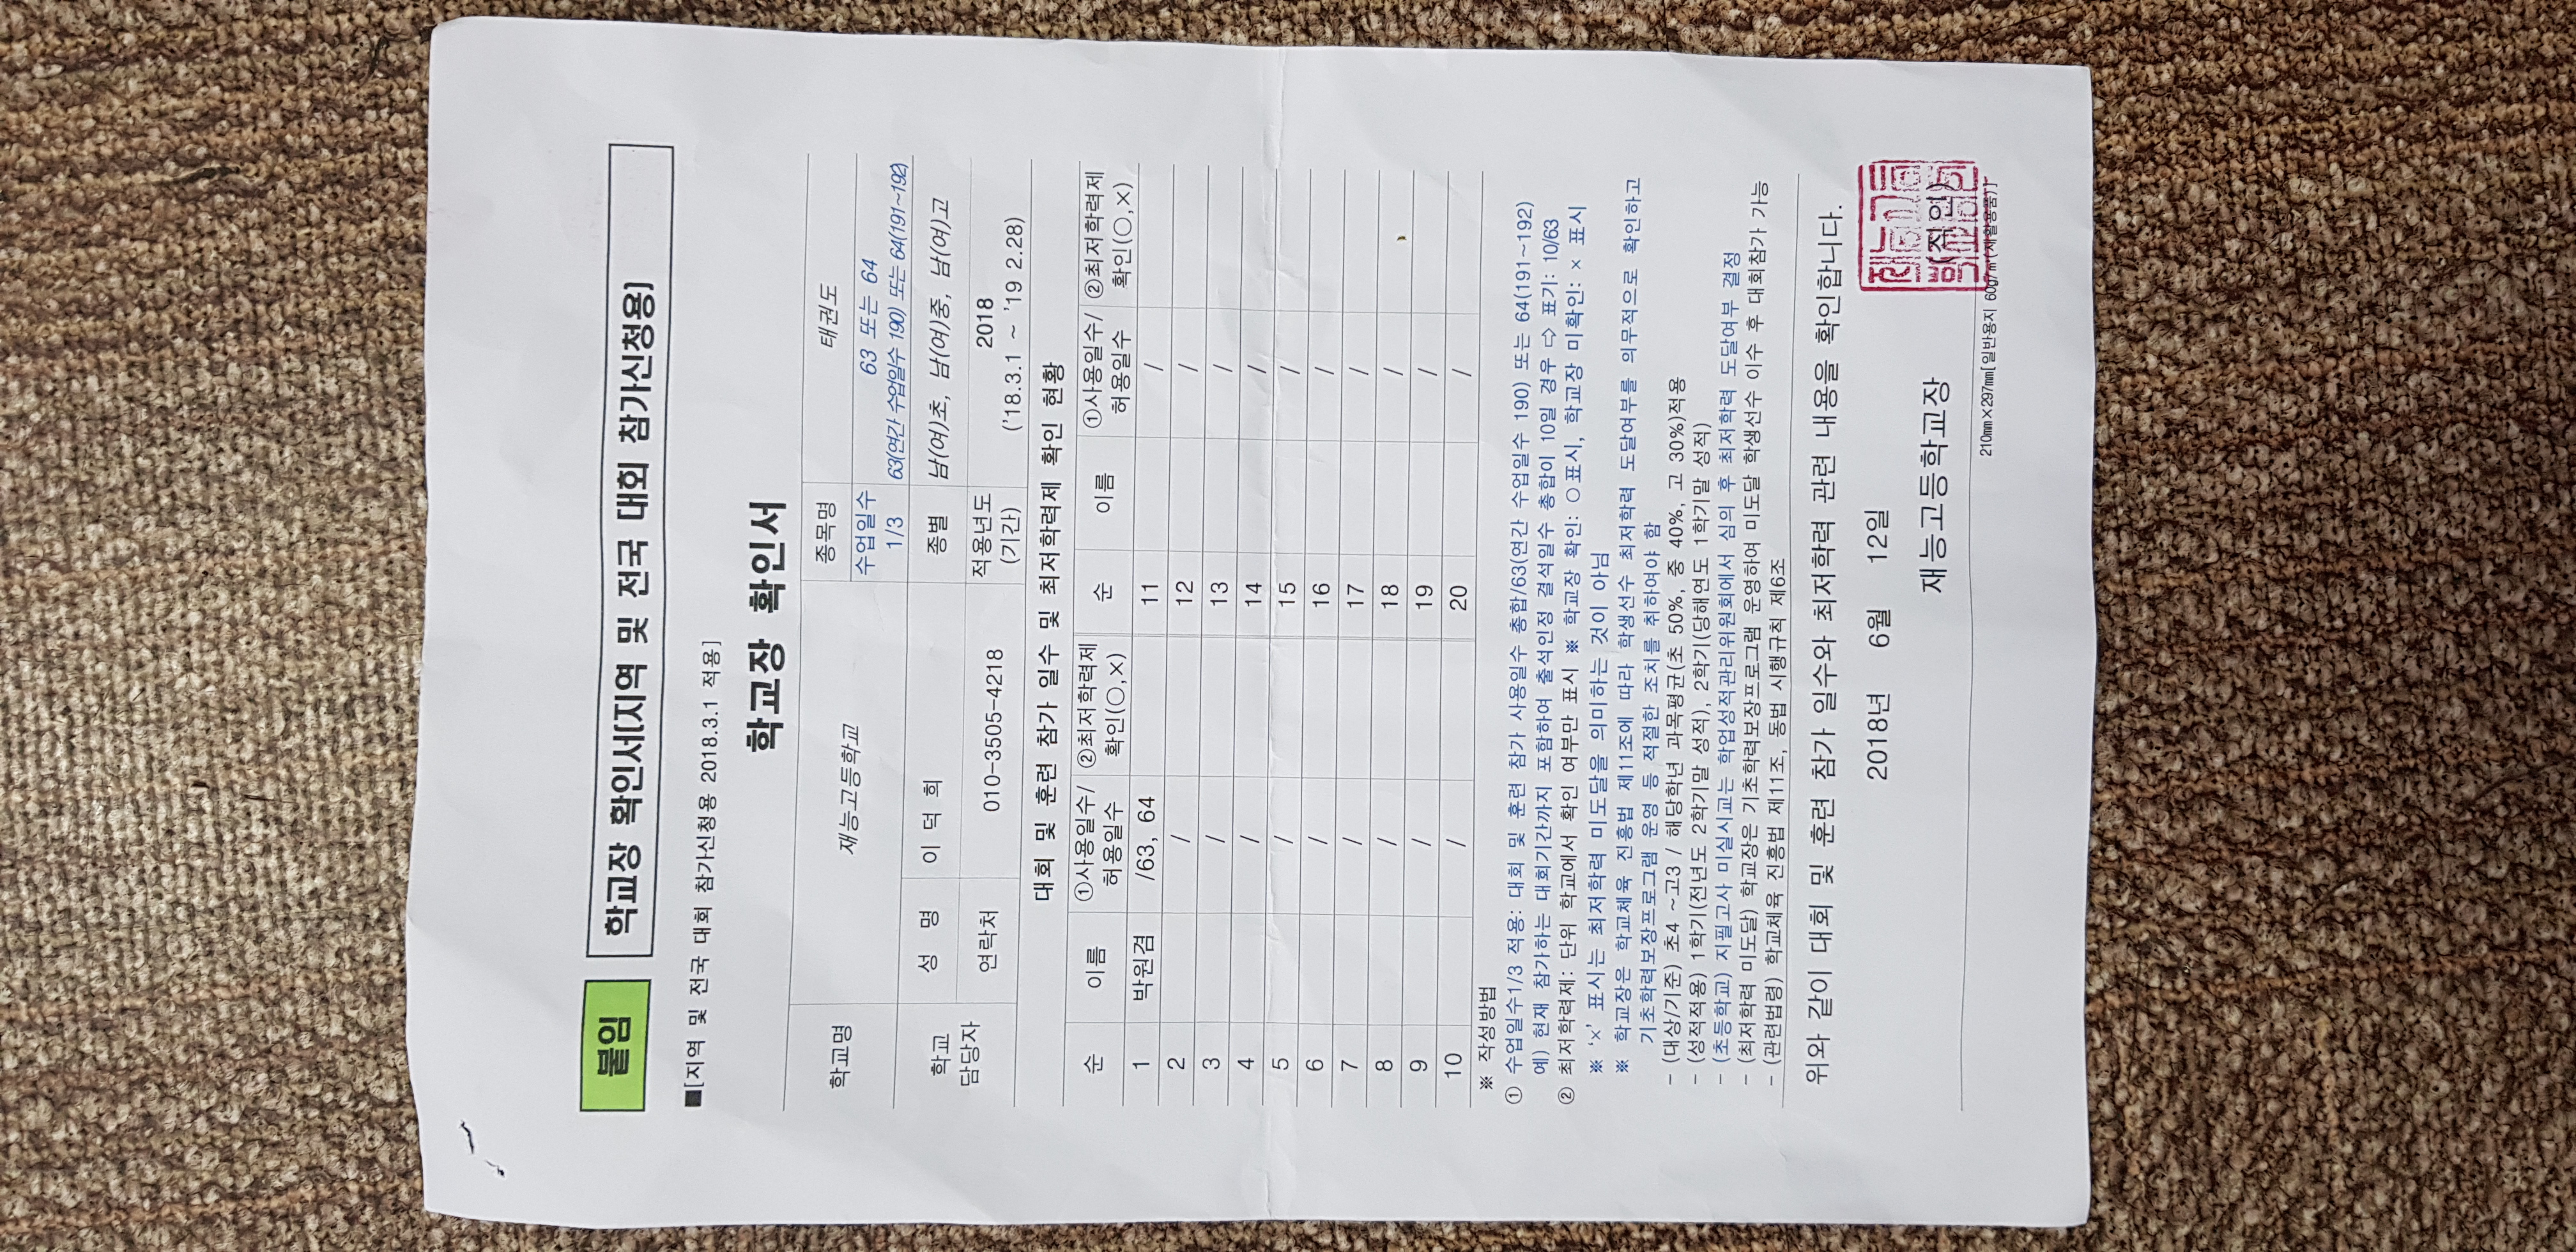 붙임
학교장 확인서[지역 및 전국 대회 참가신청용]
■[지역 및 전국 대회 참가신청용 2018.3.1 적용]
학교장 확인서
학교명 재능고등학교 종목명 태권도
수업일수 1/3 63 또는 64
63(연간 수업일수 190) 또는 64(191~192)
학교 담당자 성 명 이 덕 희 종별 남(여)초, 남(여)중, 남(여)고
연락처 010-3505-4218 적용년도 (기간) 2018
('18.3.1 ~ '19 2.28)
대회 및 훈련 참가 일수 및 최저학력제 확인 현황
순 이름 ①사용일수/허용일수 ②최저학력제 확인(○,×) 순 이름 ①사용일수/허용일수 ②최저학력제 확인(○,×)
1 박원겸 /63, 64 11 /
2 / 12 /
3 / 13 /
4 / 14 /
5 / 15 /
6 / 16 /
7 / 17 /
8 / 18 /
9 / 19 /
10 / 20 /
※ 작성방법
① 수업일수1/3 적용: 대회 및 훈련 참가 사용일수 총합/63(연간 수업일수 190) 또는 64(191~192)
예) 현재 참가하는 대회기간까지 포함하여 출석인정 결석일수 총합이 10일 경우 ⇨ 표기: 10/63
② 최저학력제: 단위 학교에서 확인 여부만 표시 ※ 학교장 확인: ○표시, 학교장 미확인: × 표시
※ '×' 표시는 최저학력 미도달을 의미하는 것이 아님
※ 학교장은 학교체육 진흥법 제11조에 따라 학생선수 최저학력 도달여부를 의무적으로 확인하고
기초학력보장프로그램 운영 등 적절한 조치를 취하여야 함
- (대상/기준) 초4 ~고3 / 해당학년 과목평균(초 50%, 중 40%, 고 30%)적용
- (성적적용) 1학기(전년도 2학기말 성적), 2학기(당해연도 1학기말 성적)
- (초등학교) 지필고사 미실시교는 학업성적관리위원회에서 심의 후 최저학력 도달여부 결정
- (최저학력 미도달) 학교장은 기초학력보장프로그램 운영하여 미도달 학생선수 이수 후 대회참가 가능
- (관련법령) 학교체육 진흥법 제11조, 동법 시행규칙 제6조
위와 같이 대회 및 훈련 참가 일수와 최저학력 관련 내용을 확인합니다.
2018년 6월 12일
재능고등학교장 (직인)
210mm×297mm[일반용지 60g/㎡(재활용품)]